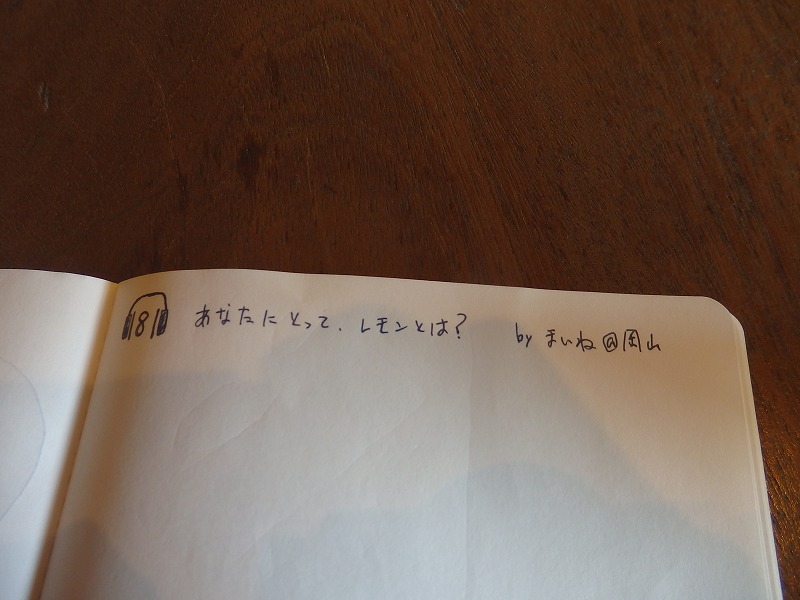 181 あなたにとって、レモンとは? by まいね@岡山